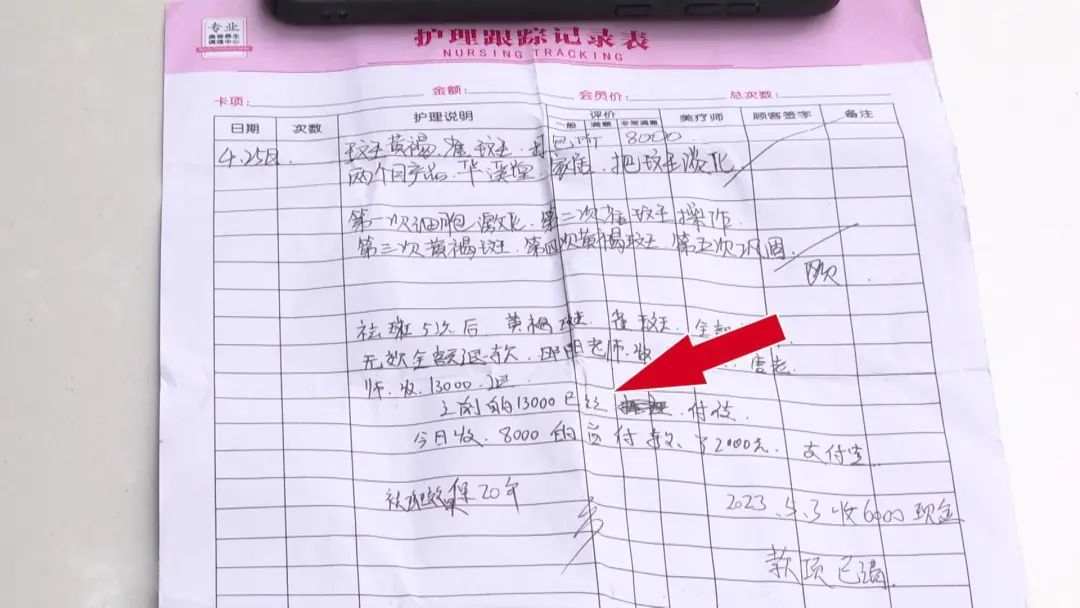 专业
康管养生
调理中心
护理跟踪记录表
NURSING TRACKING
卡项: 金额: 会员价: 总次数:
日期 次数 护理说明 评价 美疗师 顾客签字 备注
一般 满意 非常满意
4.25日 斑王黄褐 雀斑王 8000
两个月产品 家居 把斑王淡化
第一次细胞激化 第二次雀斑王操作
第三次黄褐斑王 第四次黄褐斑王 第五次巩固
欧
祛斑5次后 黄褐斑 雀斑王 全
无效全额退款 老师 收
师 收 13000
之前的13000已经 付清
今日收 8000的 付款 了2000元 支付宝
保20年
2023.5.3收6000现金
款项已清